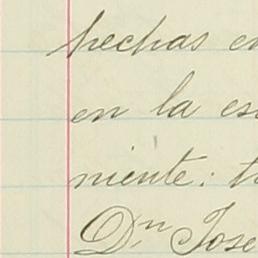 hechas en
en la es
niente: t
Dn Jose